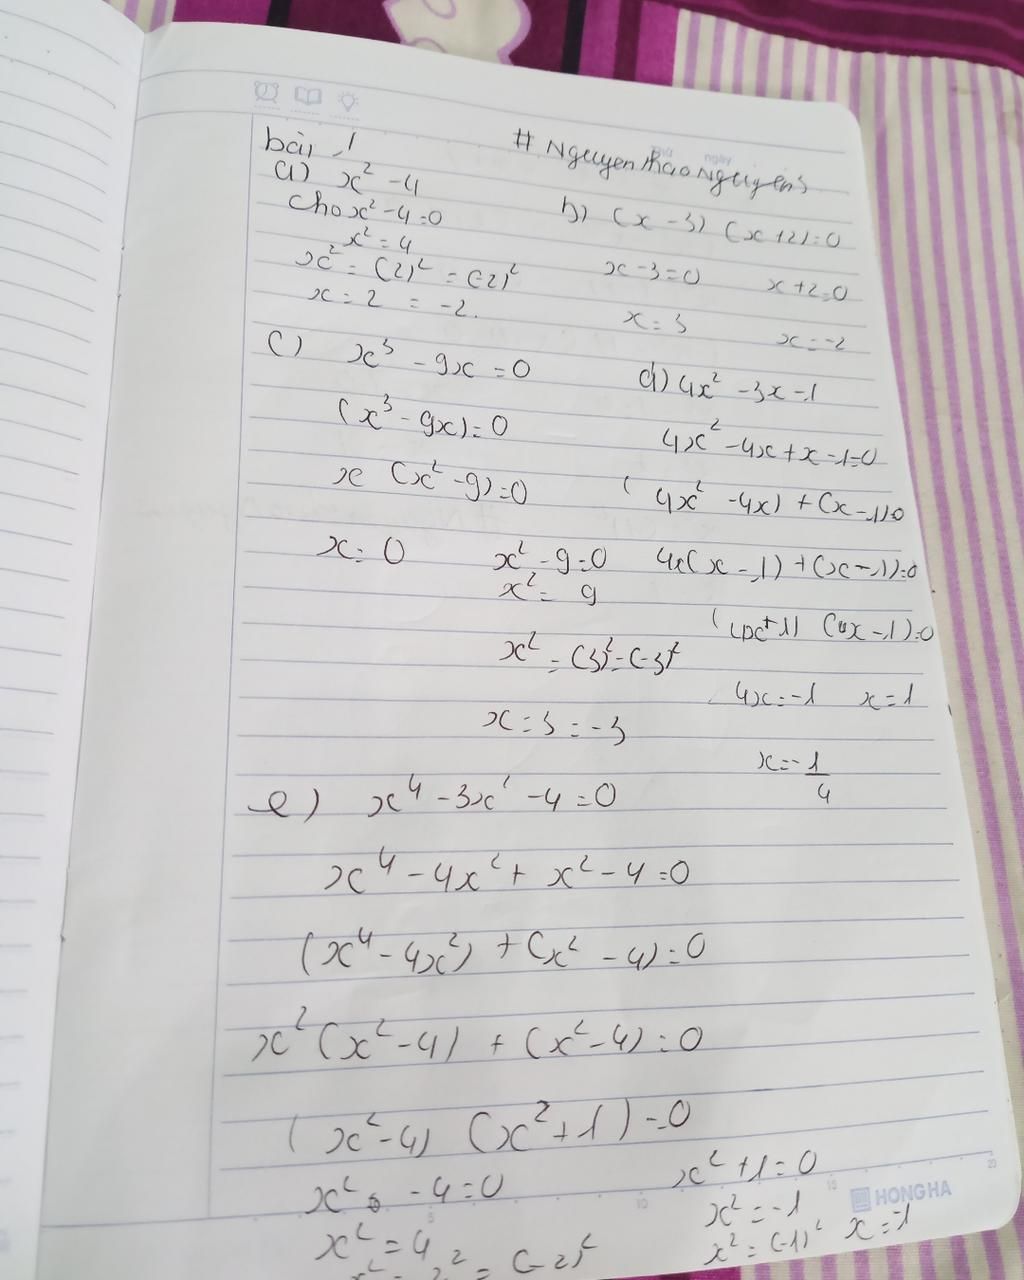 # NguyenthaoNguyen's
bài 1
a) x² - 4
Cho x² - 4 = 0
x² = 4
x² = (2)² = (-2)²
x = 2 = -2.
b) (x - 3) (x + 2) = 0
x - 3 = 0 x + 2 = 0
x = 3 x = -2
c) x³ - 9x = 0
(x³ - 9x) = 0
x (x² - 9) = 0
x = 0 x² - 9 = 0
x² = 9
x² = (3)² = (-3)²
x = 3 = -3
d) 4x² - 3x - 1
4x² - 4x + x - 1 = 0
(4x² - 4x) + (x - 1) = 0
4x(x - 1) + (x - 1) = 0
(4x + 1) (x - 1) = 0
4x = -1 x = 1
x = -1/4
e) x⁴ - 3x² - 4 = 0
x⁴ - 4x² + x² - 4 = 0
(x⁴ - 4x²) + (x² - 4) = 0
x² (x² - 4) + (x² - 4) = 0
(x² - 4) (x² + 1) = 0
x² - 4 = 0 x² + 1 = 0
x² = 4 x² = -1
x² = 2² = (-2)² x² = (-1)² x = -1
HONG HA